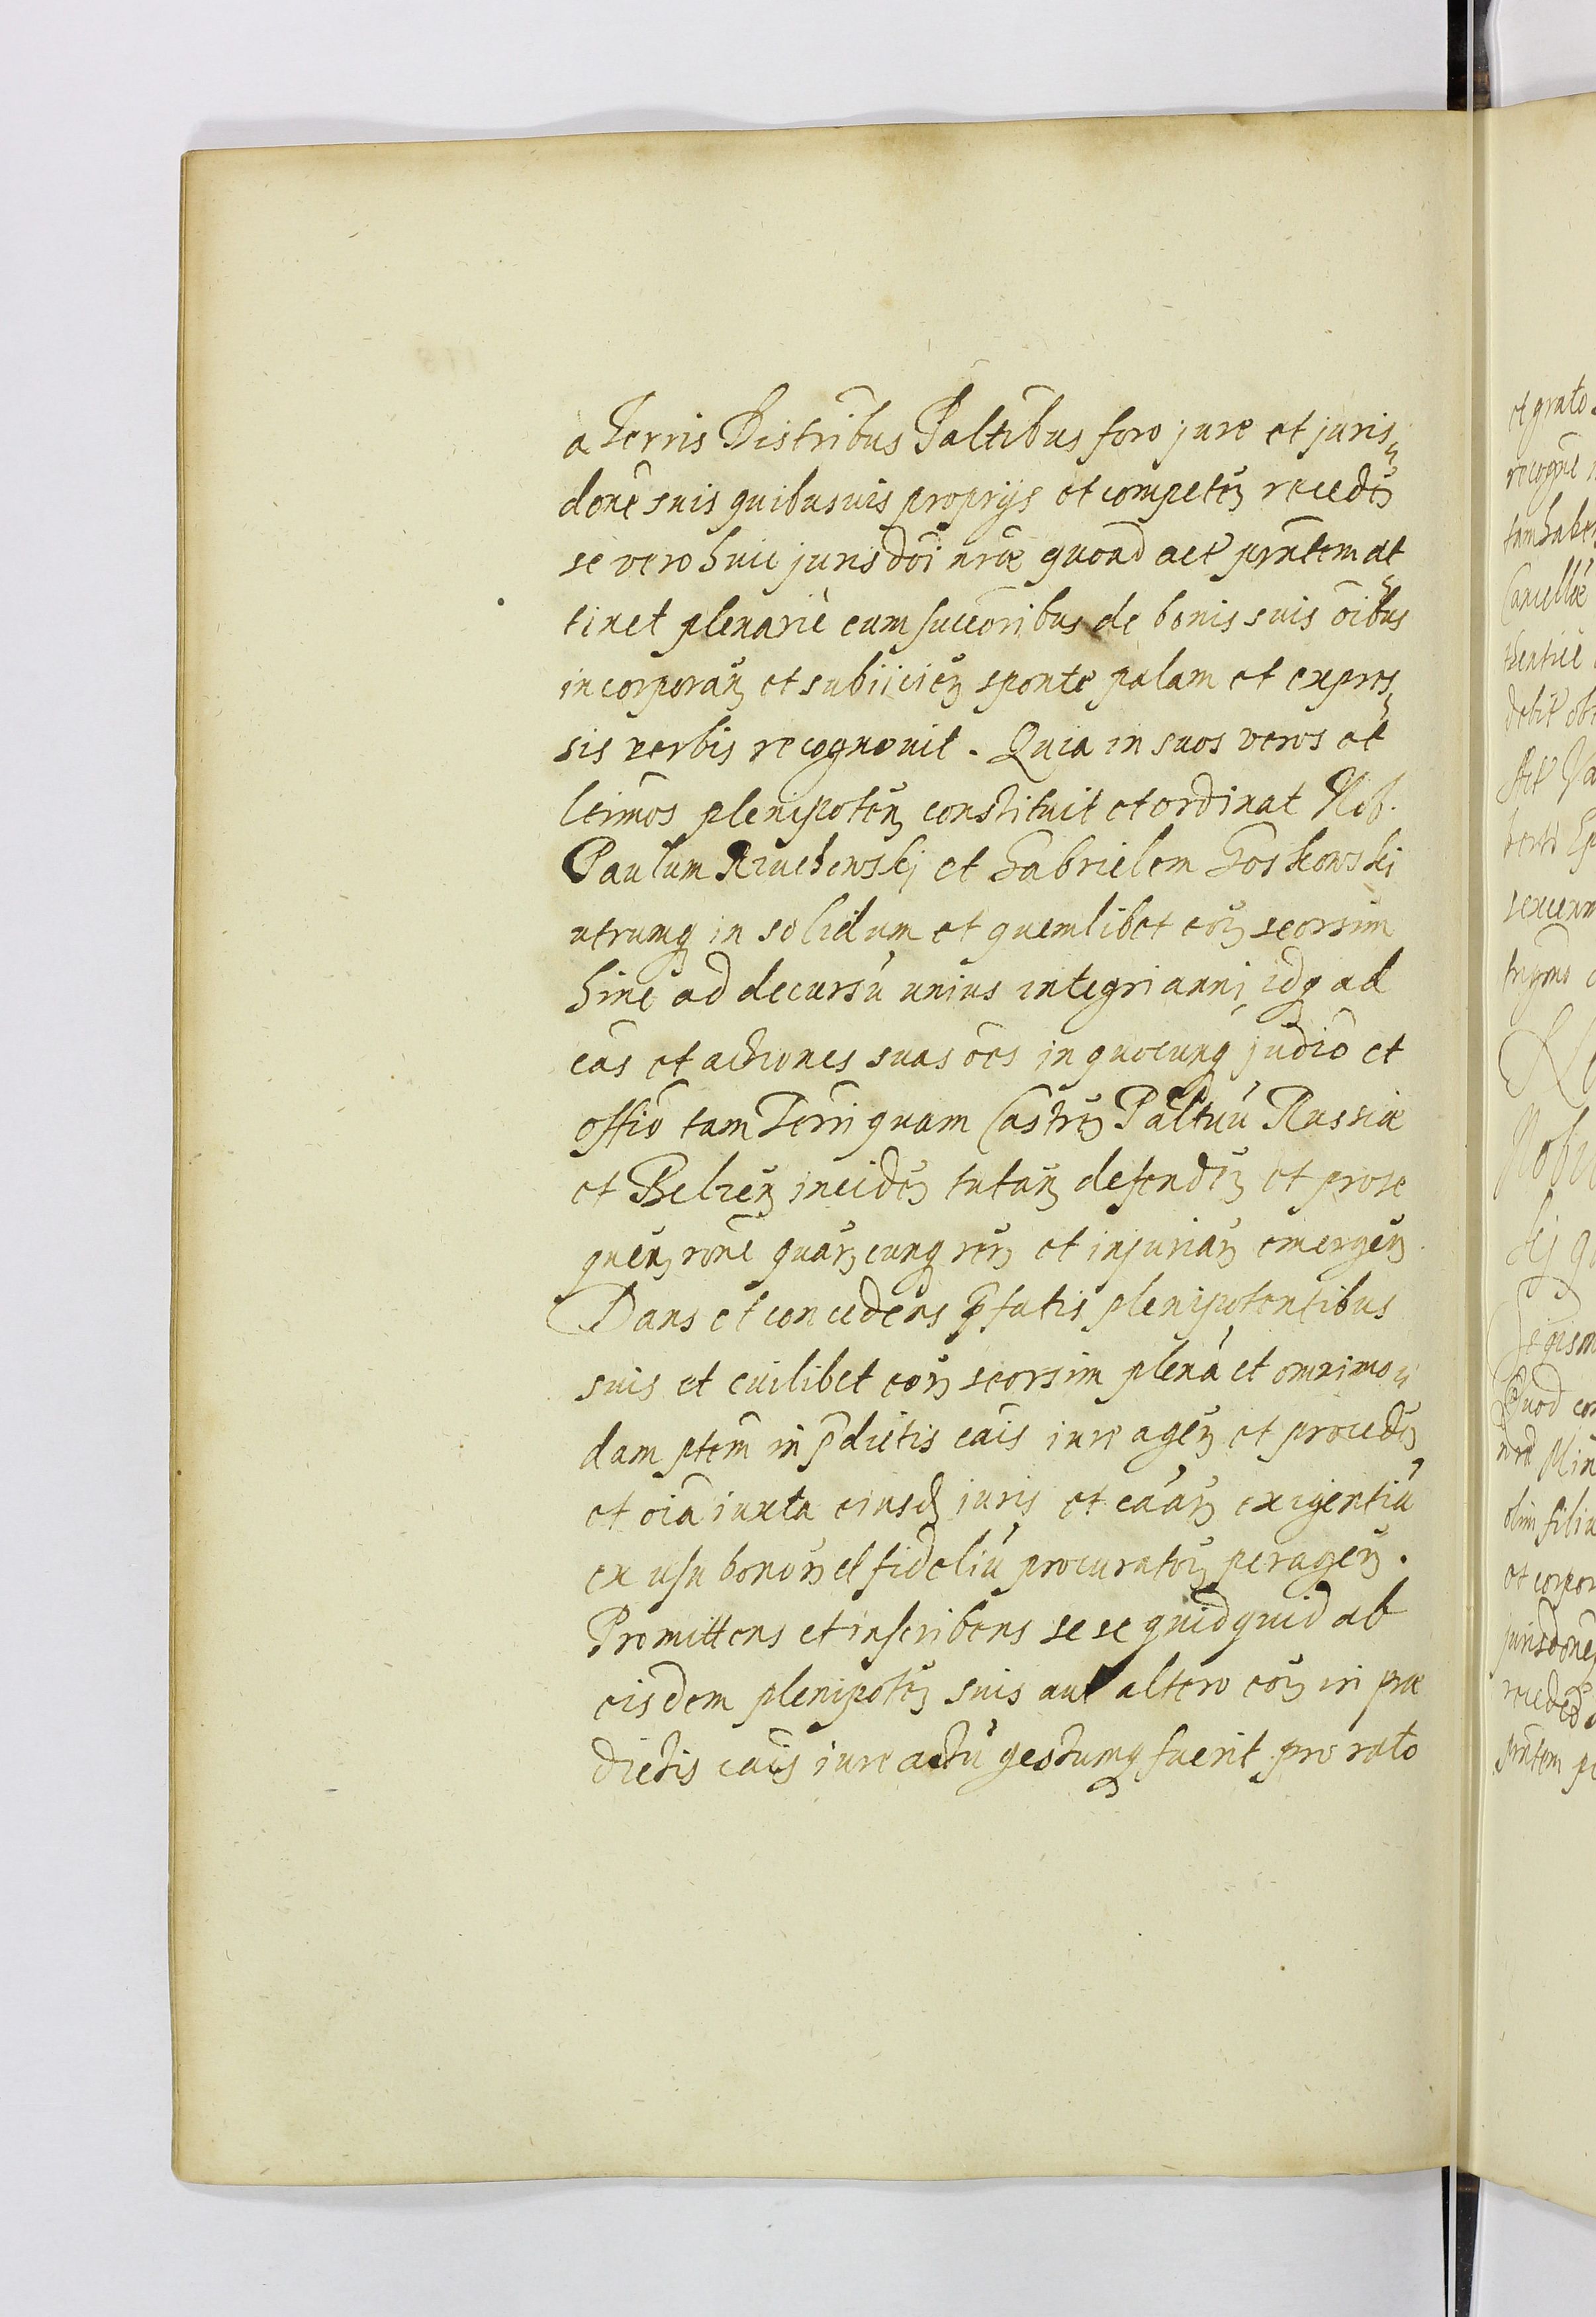 a Terris Distribus Paltibus foro jure et juris
done suis quibusuis proprijs et competen recedens
se vero huic jurisdoi nrae quoad act prntem at
tinet plenarie cum succoribus de bonis suis oibus
incorporan et subiicien sponte palam et expres
sis verbis recognovit. Quia in suos veros et
ltimos plenipoten constituit et ordinat Nob.
Paulum et Gabrielem Goskowskj
utrumq in solidum et quemlibet eor seorsim
hinc ad decursu unius integri anni idq ad
cas et actiones suas oes in quocunq judicio et
offio tam Terri quam Castren Paltuu Russiae
et Belzen inciden tutan defenden et prose
quen rone quarcunq rer et injuriar emergen
Dans et concedens pfatis plenipotentibus
suis et cuilibet eor seorsim plena et omnimo
dam ptem in pdictis cais iure agen et proceden
et oia iuxta eiusd iuris et caar exigentia
ex usu bonor et fideliu procurator peragen.
Promittens et inscribens se se quidquid ab
eisdem plenipoten suis aut altero eor in prae
dictis cais iure actu gestumq fuerit pro rato
et grato
tam habe
Cancellae
thentice
olim filiu
et corpor
jurisdone
prntem